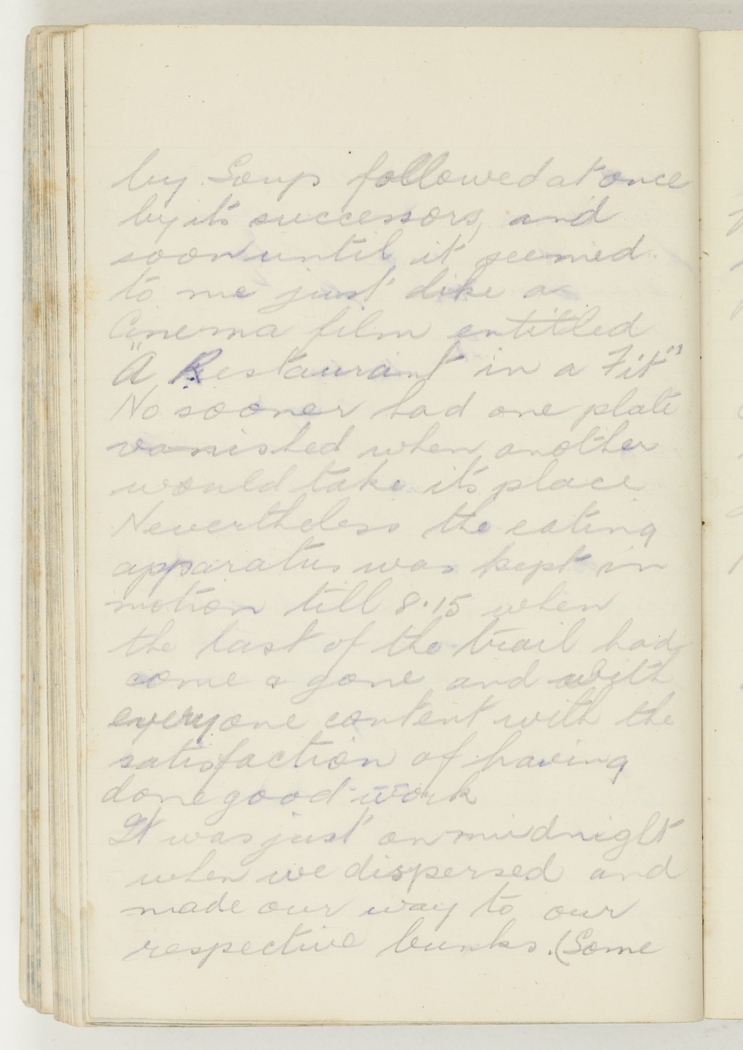 by Soup followed at once
by it's successors, and
soon until it seemed
to me just like a
Cinema film entitled
"A Restaurant in a Fit"
No sooner had one plate
vanished when another
would take it's place
Nevertheless the eating
apparatus was kept in
motion till 8.15 when
the last of the trail had
come & gone and with
everyone content with the
satisfaction of having
done good work
It was just on midnight
when we dispersed and
made our way to our
respective bunks. (Some